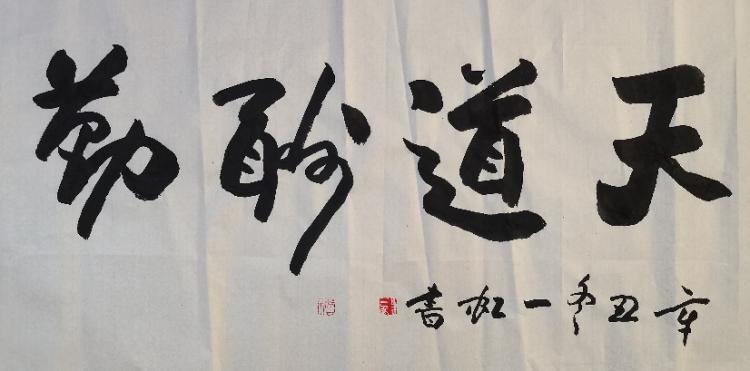 天道酬勤
辛丑冬一虹書